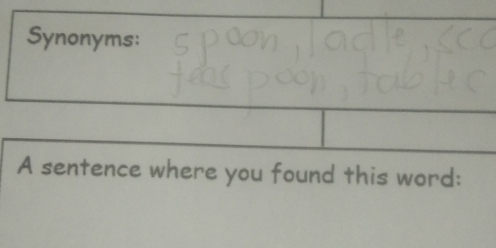 Synonyms: spoon, ladle, sco
teaspoon, tables
A sentence where you found this word: